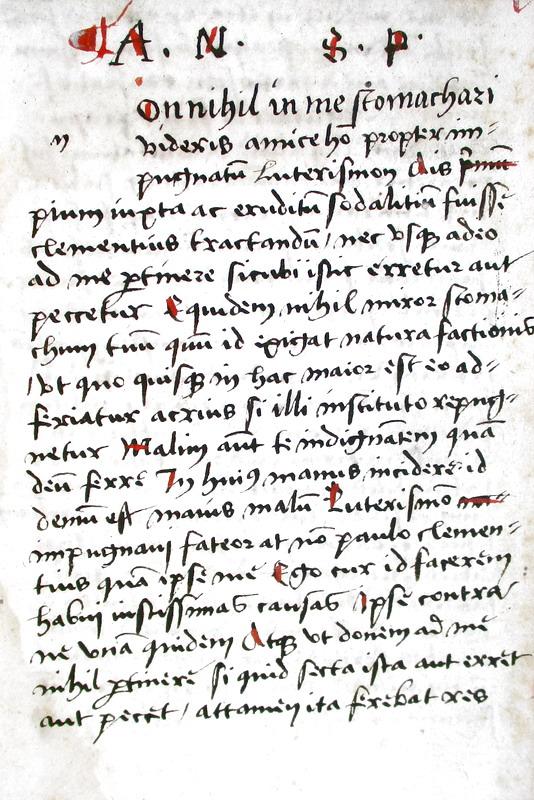 A. N. S. P.
On nihil in me stomachari
n
videris amice hō propter im-
pugnatū Luterismon Ais
pium iuxta ac eruditū sodalitiū fuisse
clementius tractandū / nec vsqꝫ adeo
ad me ꝑtinere sicubi istic erretur aut
peccetur Equidem nihil miror stoma-
chum tuū quū id exigat natura factionis
/ vt quo quisqꝫ in hac maior est eo ad-
feriatur acrius si illi instituto repug-
netur Malim aūt te indignātem quā
deū ferre In huiꝰ manus incidere id
demū est maius malū Luterismō
impugnaui fateor at nō paulo clemen-
tius quā ipse me Ego cur id facerem
habui iustissimas causas Ipse contra
ne vnā quidem Atqꝫ vt donem ad me
nihil ꝑtinere si quid secta ista aut erret
aut peccet / attamen ita ferebat res